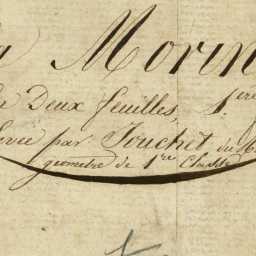 Morin
Deux feuilles, 1.ere
par Jouchet du
géometre de 1.re Classe